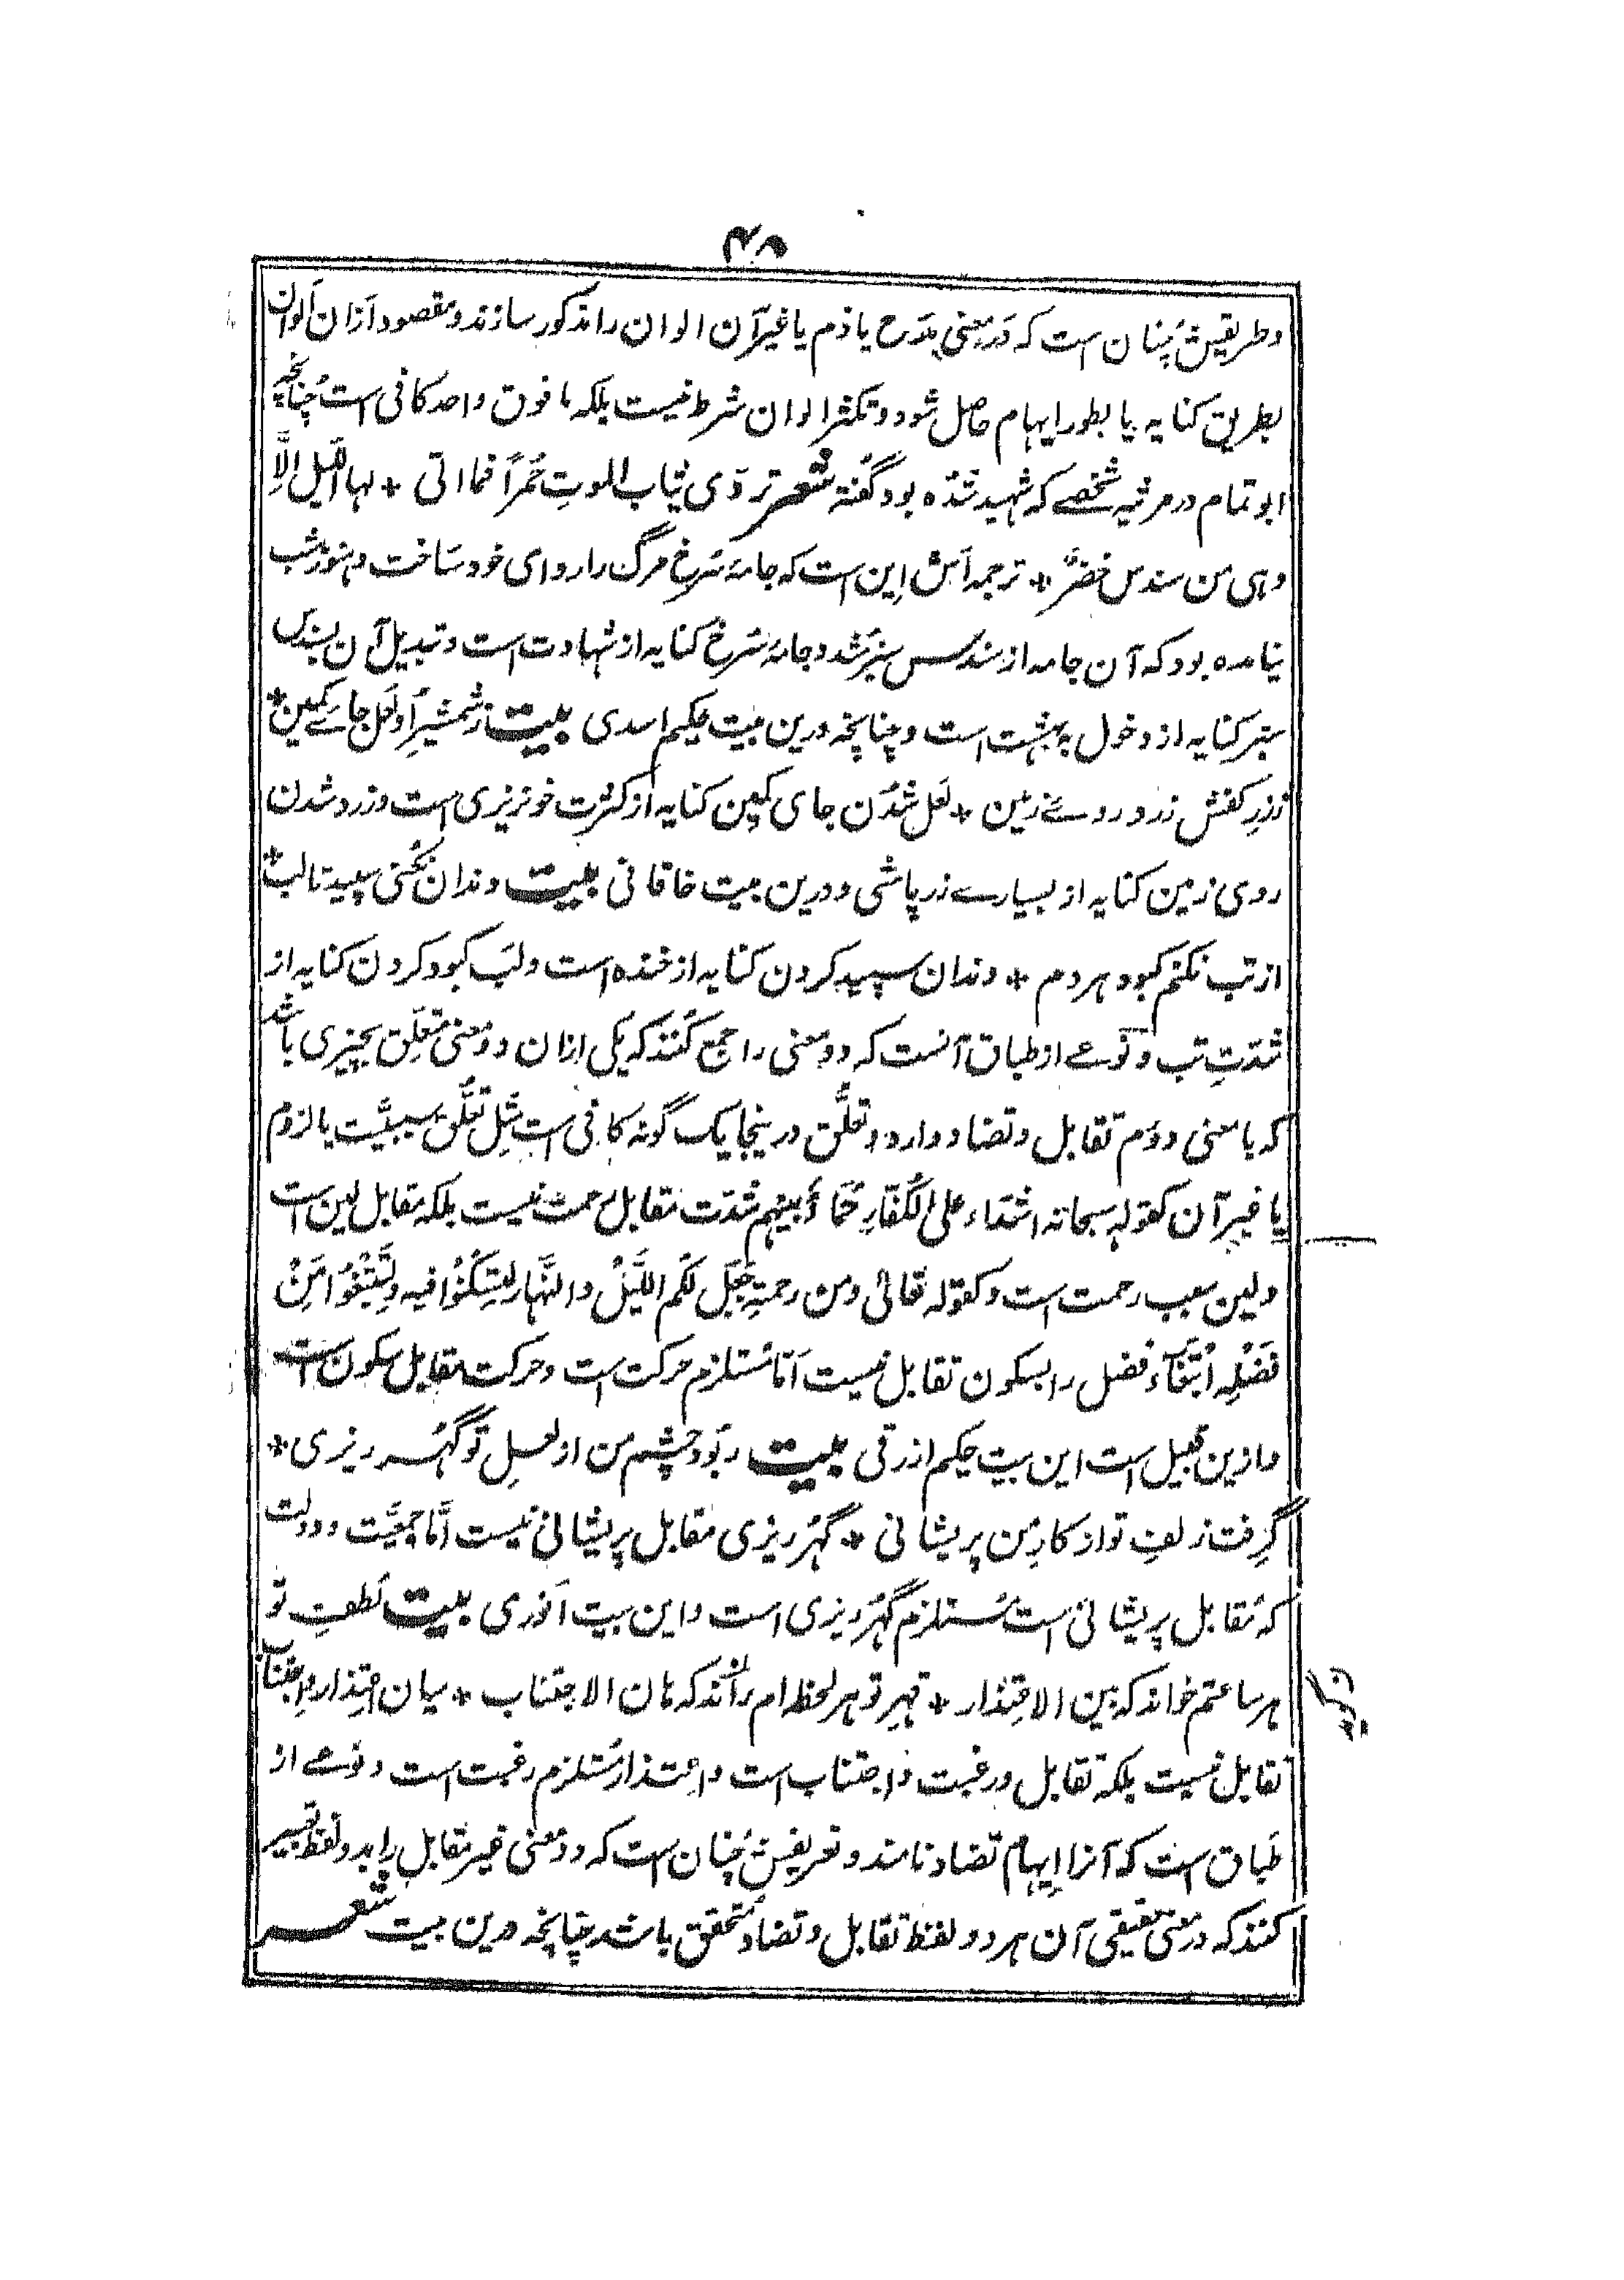 ۴۸
وطریقش چُنان است که دَر معنی مدَح یا ذم یا غیرآن الوان را مذکور سازند و مقصود اَزان اَلوان
بطریق کنایه یا بطور ایهام حاصل شود و تکثر الوان شرط نیست بلکه ما فوق واحد کافی است چُنانچه
ابوتمام در مرثیه شخصے که شهید شدَه بود گفته شعر تردّی ثیاب الموتِ حُمراً فما اتی * لها اللّیل اِلَّا
وهی من سندس خضرٌ * ترجمه اَش اِین است که جامهٔ سُرخ مرگ را ردای خود سَاخت و هنوز شب
نیامده بود که آن جامه از سندس سبز شُد و جامهٔ سُرخ کنایه از شهادت است و تبدیل آن بسندس
سَبز کنایه از دخول بهشت است و چنانچه درین بیت حکیم اسدی بیت ز شمشیر اُو لعل جائے کمین *
ز زرِ کفش زرد روئے زمین * لَعل شدُن جای کمین کنایه از کثرت خونریزی است و زرد شدن
روی زمین کنایه از بسیارے زر پاشی و درین بیت خاقانی بیت دندان نکُنی سپید تا لب *
از تب نکنم کبود هردم * دندان سپید کردن کنایه از خنده است و لَب کبود کردن کنایه از
شدّتِ تب و نَوعے از طباق آنست که دو معنی را جمع کُنند که یکی ازان دو معنی متعلّق بچیزی باشد
که با معنی دوَم تقابل و تضاد دارد و تعلُّق درینجا یک گونه کافی است مثلِ تعلُّق سببیَّت یا لزوم
یا غیر آن کقوله سبحانه اشدّاء علی الکُفّارِ رُحَمَاءُ بینهم شدّت مقابل رحمت نیست بلکه مقابل لین است
و لین سبب رحمت است و کقوله تعالیٰ ومن رحمتِهٖ جَعَلَ لکُم اللَّیلَ والنَّهارَ لِتَسکُنُوا فیه و لِتَبتَغُوا مِنْ
فَضْلِهِ اُبتغَآءِ فضل را بسکون تقابل نیست اَمّا مُستلزم حرکت است و حرکت مقابل سکون است
و ازین قبیل است این بیت حکیم ازرقی بیت ربُود چشم من از لعلِ تو گُهر ریزی *
گرِفت زلفِ تو از کارِ من پریشانی * گُهر ریزی مقابل پریشانی نیست اَمَّا جمعیَّت و دولت
که مُقابل پریشانی است مُستلزم گُهر ریزی است و این بیت اَنوری بیت لُطفِ تو
هر ساعتم خواند که بین الاعتذار * قهرِ تو هر لحظه ام راند که هان الاجتناب * میان اعتِذار و اِجتناب
تقابل نیست بلکه تقابل در رغبت و اجتناب است و اعتذار مُستلزم رغبت است و نوعے از
طباق است که آنرا اِیهام تضاد نامند و تعریفش چُنان است که دو معنی غیر مقابل را بدو لفظ تعبیر
کنند که در معنی حقیقی آن هردو لفظ تقابل و تضاد متحقق باشد چنانچه درین بیت شعر